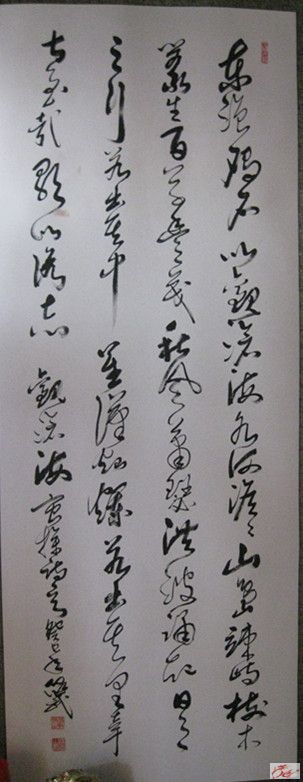 東臨碣石以觀滄海水何澹〻山島竦峙樹木
叢生百草豐茂秋風蕭瑟洪波涌起日月
之行若出其中星漢燦爛若出其里幸
甚至哉歌以詠志 觀滄海 曹操詩 癸巳年